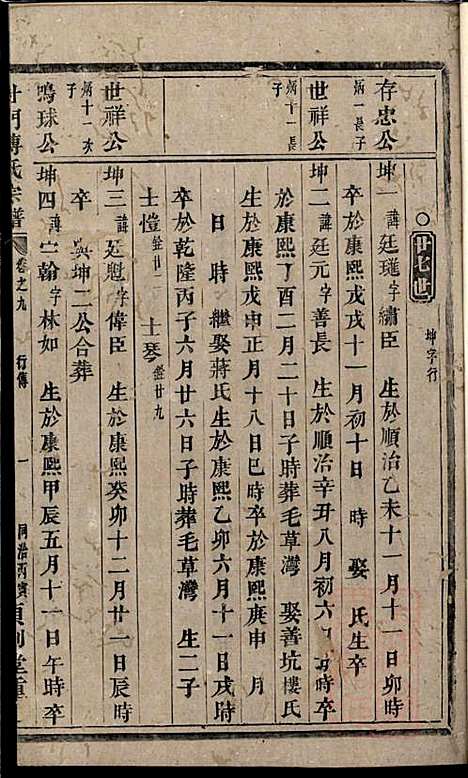 廿七世
坤字行
存忠公
炳一長子
坤一諱廷璡字繡臣 生於順治乙未十一月十一日卯時
卒於康熙戊戌十一月初十日 時 娶 氏生卒
世祥公
炳十一長子
坤二諱廷元字善長 生於順治辛丑八月初六日 時卒
於康熙丁酉二月二十日子時葬毛草灣 娶善坑樓氏
生於康熙戊申正月十八日巳時卒於康熙庚申 月
日 時 繼娶蔣氏生於康熙乙卯六月十一日戌時
卒於乾隆丙子六月廿六日子時葬毛草灣 生二子
士愷 廿二 士琴 廿九
世祥公
炳十一次子
坤三諱廷魁字偉臣 生於康熙癸卯十二月廿一日辰時
卒 與坤二公合葬
鳴球公
坤四諱 翰字林如 生於康熙甲辰五月十一日午時卒
傅氏宗譜
卷之九 行傳
一
同治丙寅